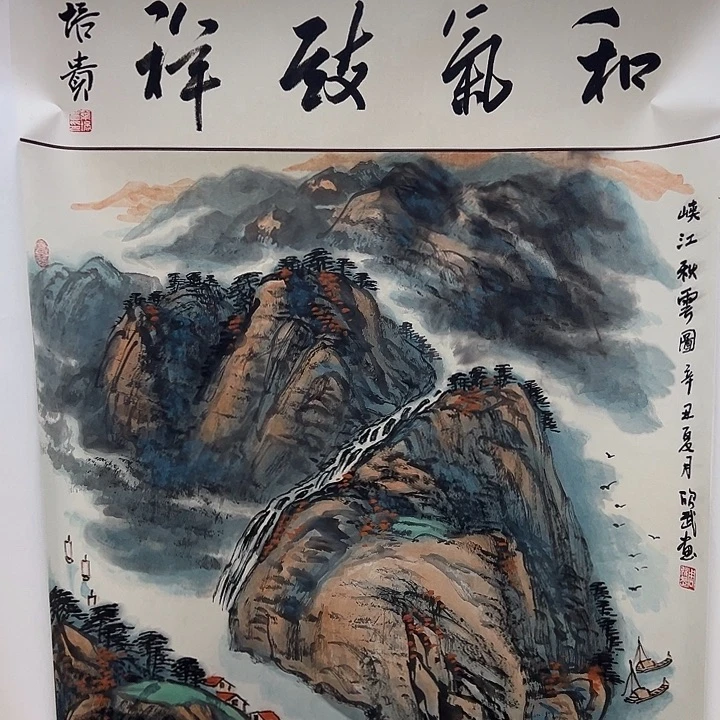 和氣致祥
培貴
峡江秋雲圖 辛丑夏月 欣武畫